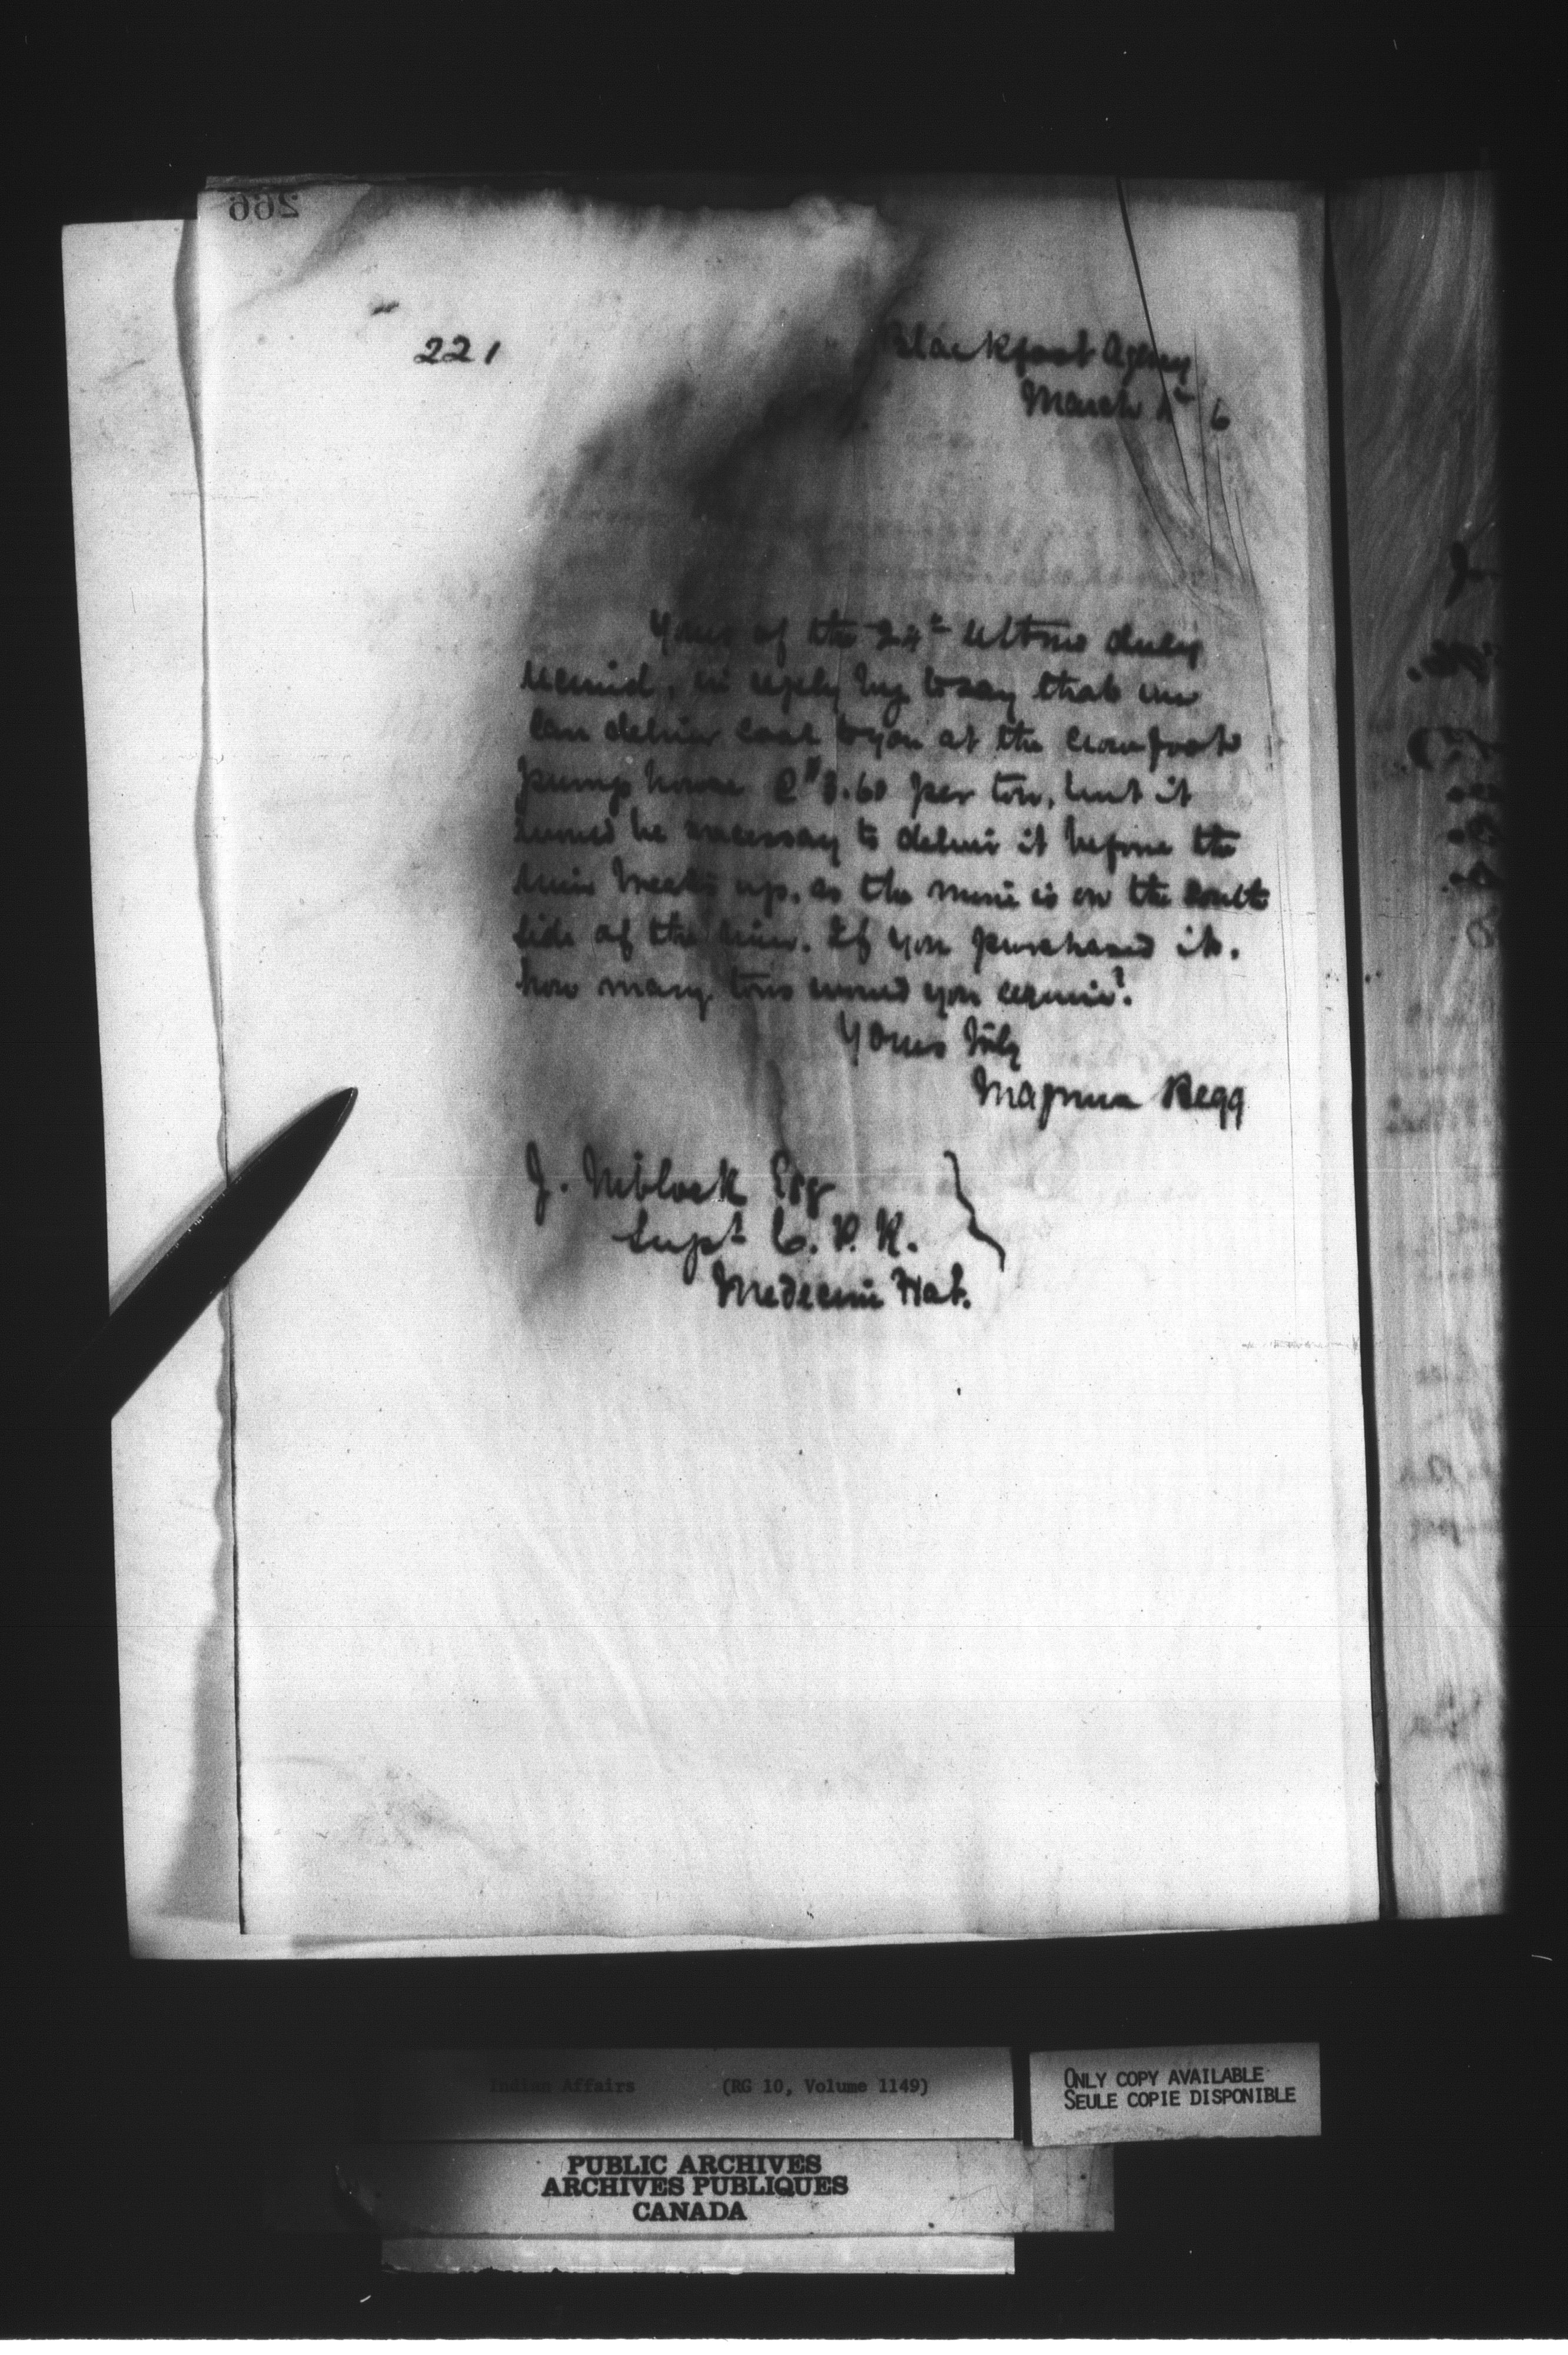 266
221
Blackfoot Agency
March 1st 6
Yours of the 24th ultimo duly
received, in reply beg to say that we
can deliver coal to you at the Crowfoot
pump house @ $3.60 per ton, but it
would be necessary to deliver it before the
river breaks up, as the mine is on the south
side of the river. If you purchased it,
how many tons would you require?
Yours truly
Magnus Begg
J. Niblock Esq
Supt C.P.R.
Medecine Hat.
Indian Affairs (RG 10, Volume 1149)
ONLY COPY AVAILABLE
SEULE COPIE DISPONIBLE
PUBLIC ARCHIVES
ARCHIVES PUBLIQUES
CANADA